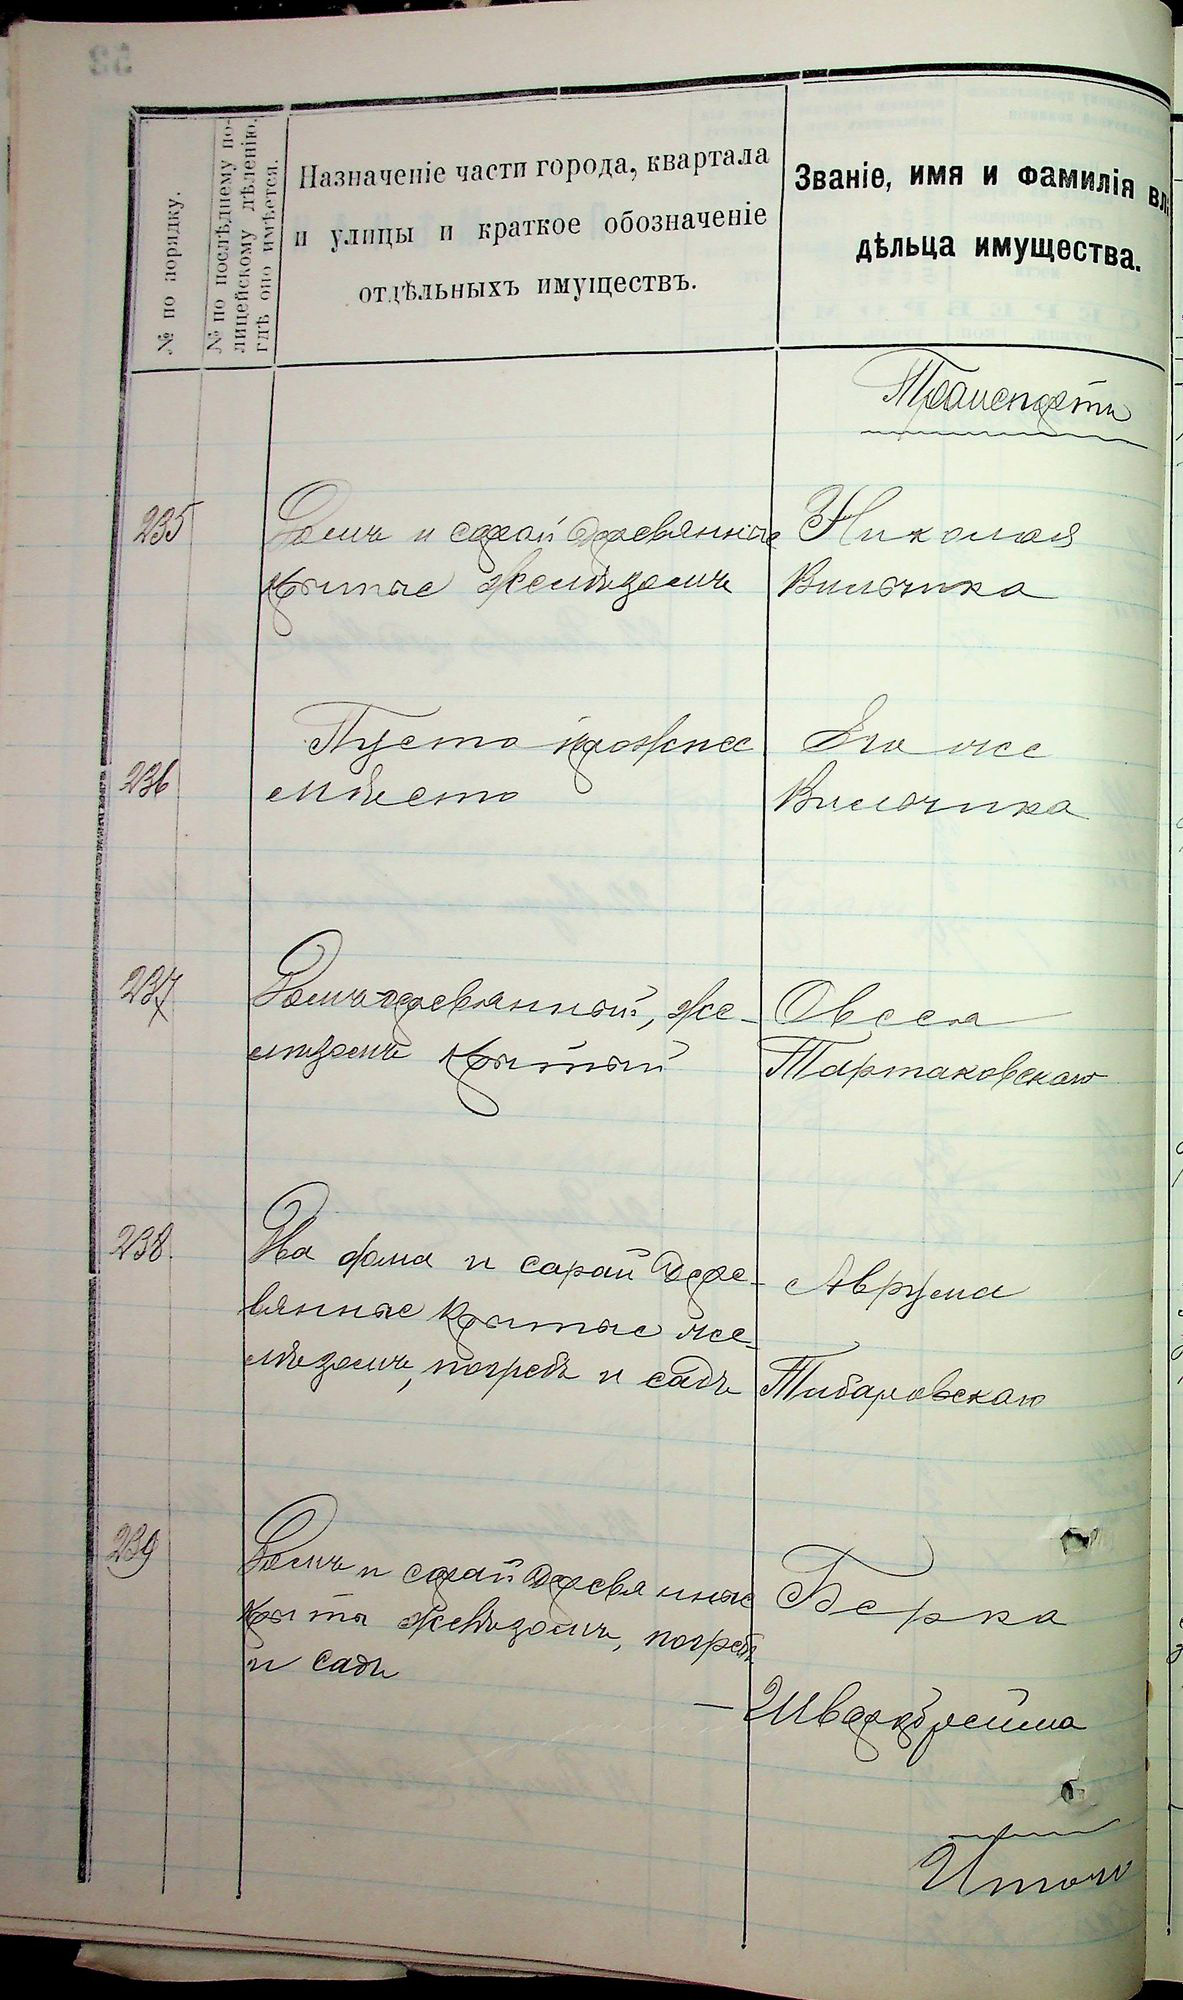 № по порядку.
№ по послѣднему по-
лицейскому дѣленію,
гдѣ оно имѣется.
Назначеніе части города, квартала
и улицы и краткое обозначеніе
отдѣльныхъ имуществъ.
Званіе, имя и фамилія вла
дѣльца имущества.
Транспортъ
235
Домъ и сарай деревянные
крытые желѣзомъ
Николая
236
Пусто порожнее
мѣсто
Его же
237
Домъ деревянный, же-
лѣзомъ крытый
Овсея
Тартаковскаго
238.
Два дома и сарай дере-
вянные крытые же-
лѣзомъ, погребъ и садъ
Аврума
239
Домъ и сарай деревянные
крыты желѣзомъ, погребъ
и садъ
Берка
Итого